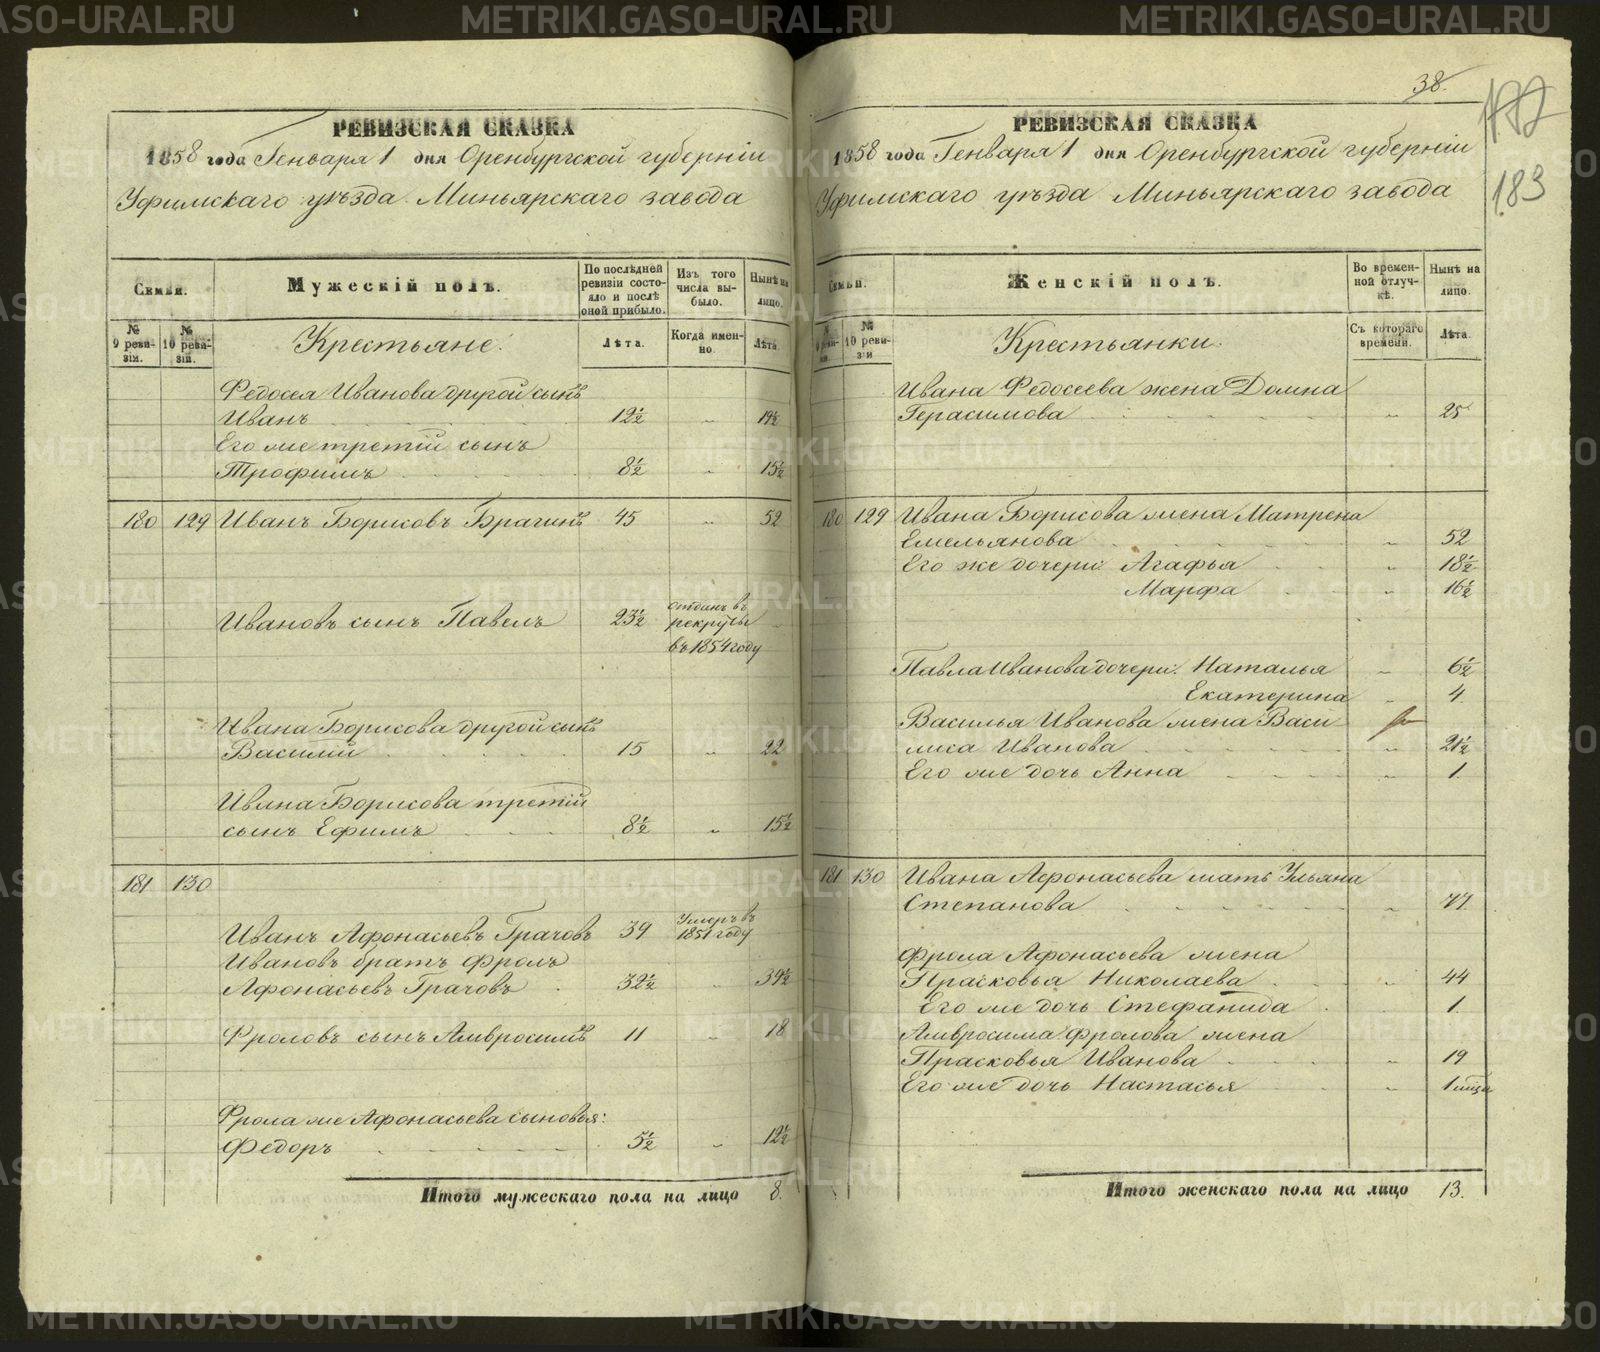 РЕВИЗСКАЯ СКАЗКА
1858 года Генваря 1 дня Оренбургской губерніи
Уфимскаго уѣзда Миньярскаго завода
Семьи.
Мужескій полъ.
По послѣдней ревизіи состояло и послѣ оной прибыло.
Изъ того числа выбыло.
Нынѣ на лицо.
№ 9 ревизіи.
№ 10 ревизіи.
Крестьяне.
Лѣта.
Когда именно.
Лѣта.
Федосея Иванова другой сынъ
Иванъ 12½ „ 19½
Его же третій сынъ
Трофимъ 8½ „ 15½
180 129 Иванъ Борисовъ Брагинъ 45 „ 52
Ивановъ сынъ Павелъ 23½ отданъ въ рекруты въ 1854 году
Ивана Борисова другой сынъ
Василій 15 „ 22
Ивана Борисова третій
сынъ Ефимъ 8½ „ 15½
181 130
Иванъ Афонасьевъ Грачовъ 39 Умеръ въ 1851 году
Ивановъ братъ Фролъ
Афонасьевъ Грачовъ 32½ „ 39½
Фроловъ сынъ Амвросимъ 11 „ 18
Фрола же Афонасьева сыновья:
Федоръ 5½ „ 12½
Итого мужескаго пола на лицо 8.
38.
183
РЕВИЗСКАЯ СКАЗКА
1858 года Генваря 1 дня Оренбургской губерніи
Уфимскаго уѣзда Миньярскаго завода
Семьи.
Женскій полъ.
Во временной отлучкѣ.
Нынѣ на лицо.
№ 9 ревизіи
№ 10 ревизіи
Крестьянки.
Съ котораго времени.
Лѣта.
Ивана Федосеева жена Домна
Герасимова „ 25
180 129 Ивана Борисова жена Матрена
Емельянова „ 52
Его же дочери: Агафья „ 18½
Марфа „ 16½
Павла Иванова дочери: Наталья „ 6½
Екатерина „ 4.
Василья Иванова жена Васи
лиса Иванова „ 21½
Его же дочь Анна „ 1.
181 130 Ивана Афонасьева мать Ульяна
Степанова „ 77.
Фрола Афонасьева жена
Прасковья Николаева „ 44
Его же дочь Стефанида „ 1.
Амвросима Фролова жена
Прасковья Иванова „ 19
Его же дочь Настасья „ 1 мѣся
Итого женскаго пола на лицо 13.
METRIKI.GASO-URAL.RU